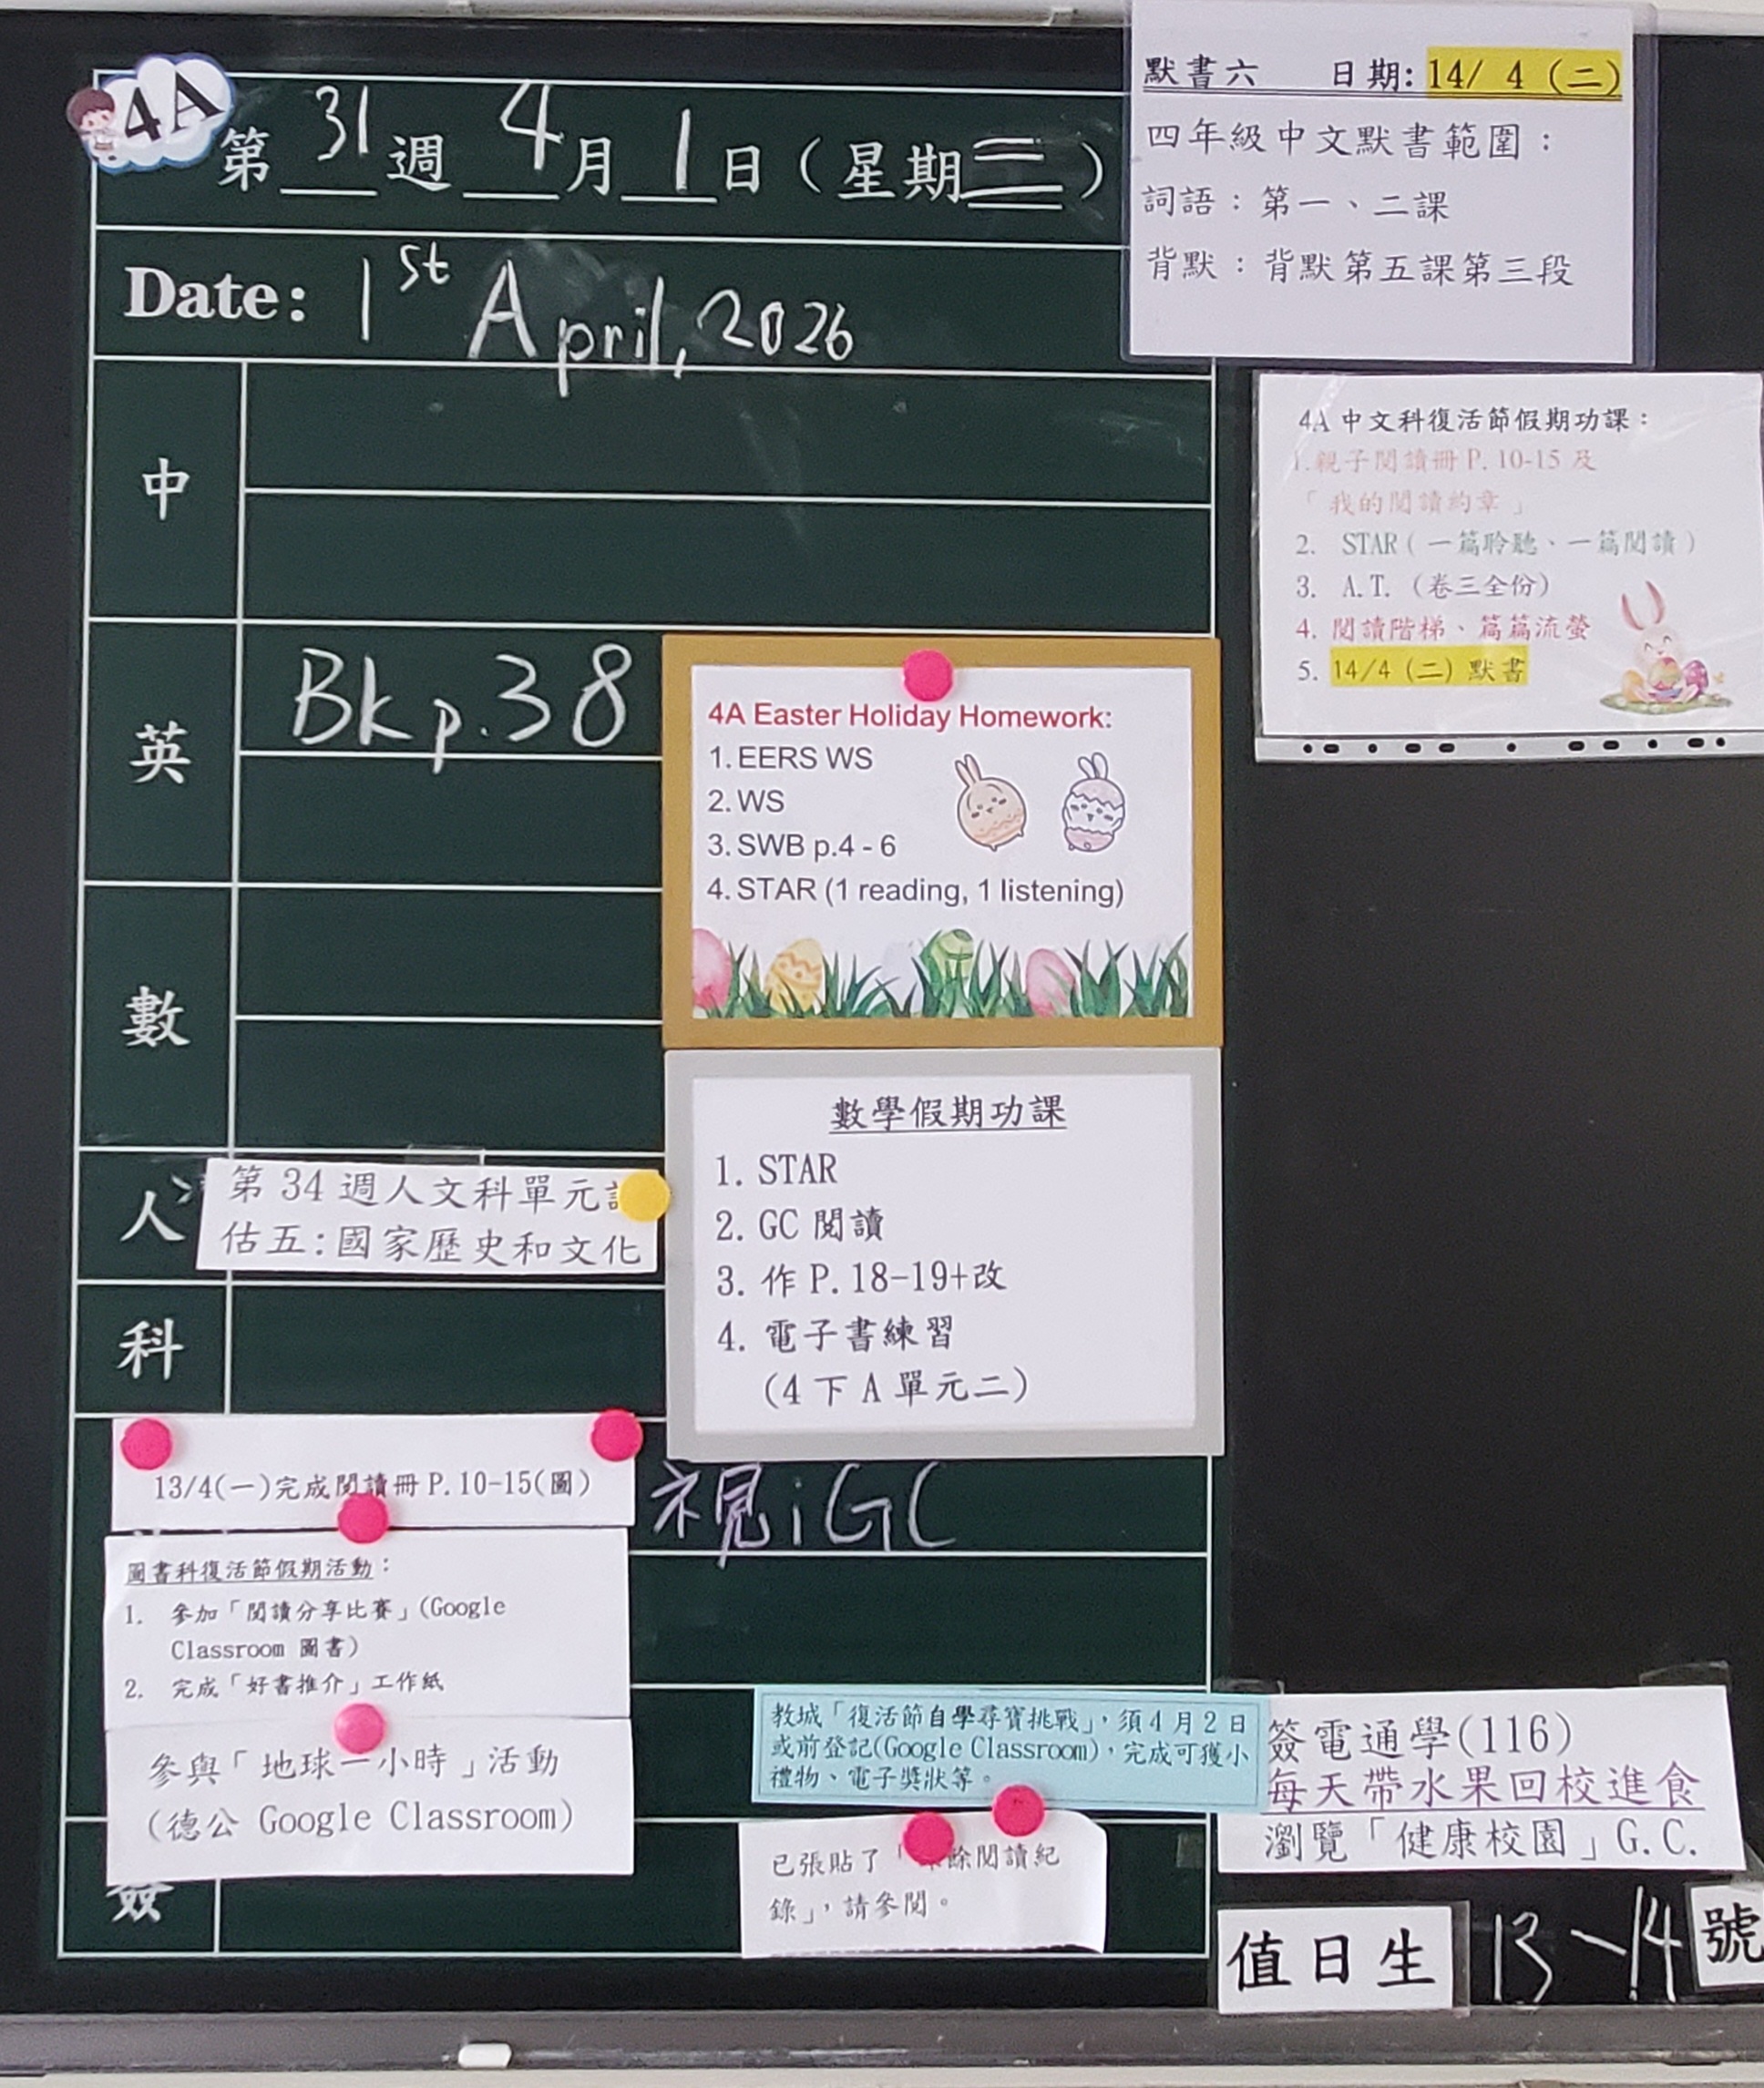 4A
第 31 週 4 月 1 日（星期三）
Date: 1st April, 2026
默書六 日期: 14/ 4 (二)
四年級中文默書範圍：
詞語：第一、二課
背默：背默第五課第三段
4A 中文科復活節假期功課：
1.親子閱讀冊 P. 10-15 及
「我的閱讀約章」
2. STAR（一篇聆聽、一篇閱讀）
3. A.T.（卷三全份）
4. 閱讀階梯、篇篇流螢
5. 14/4 (二) 默書
中
英
Bk p.38
4A Easter Holiday Homework:
1. EERS WS
2. WS
3. SWB p.4 - 6
4. STAR (1 reading, 1 listening)
數
數學假期功課
1. STAR
2. GC 閱讀
3. 作 P.18-19+改
4. 電子書練習
(4 下 A 單元二)
人
第 34 週人文科單元
估五：國家歷史和文化
科
13/4(一)完成閱讀冊 P.10-15(圖)
視 iGC
圖書科復活節假期活動：
1. 參加「閱讀分享比賽」(Google
Classroom 圖書)
2. 完成「好書推介」工作紙
參與「地球一小時」活動
(德公 Google Classroom)
教城「復活節自學尋寶挑戰」，須 4 月 2 日
或前登記(Google Classroom)，完成可獲小
禮物、電子獎狀等。
簽
已張貼了「餘閱讀紀
錄」，請參閱。
簽電通學(116)
每天帶水果回校進食
瀏覽「健康校園」G.C.
值日生 13、14 號